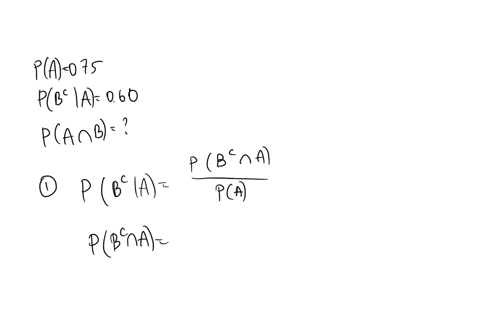 P(A)=0.75
P(Bᶜ|A)=0.60
P(A∩B)=?
① P(Bᶜ|A)= P(Bᶜ∩A)/P(A)
P(Bᶜ∩A)=